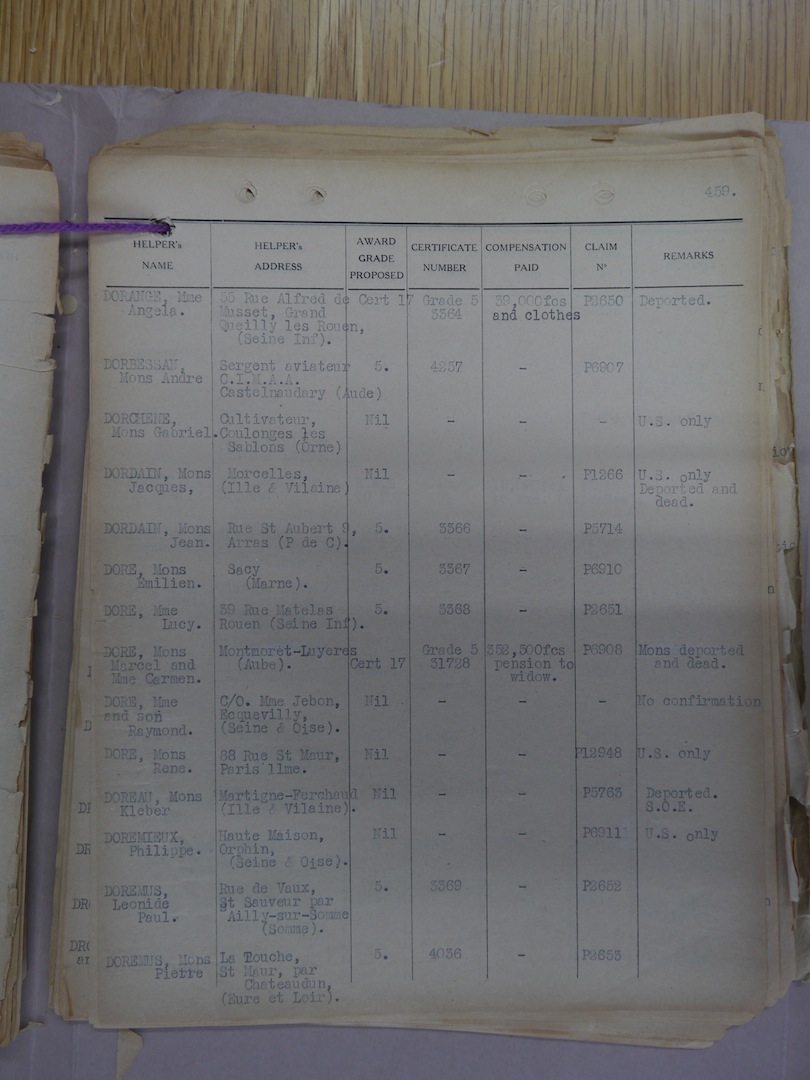 459.
HELPER's NAME HELPER's ADDRESS AWARD GRADE PROPOSED CERTIFICATE NUMBER COMPENSATION PAID CLAIM Nº REMARKS
DORANGE, Mme 35 Rue Alfred de Cert 17 Grade 5 39,000fcs P2650 Deported.
Angela. Musset, Grand 3364 and clothes
Queilly les Rouen,
(Seine Inf).
DORBESSAN, Sergent aviateur 5. 4257 - P6907
Mons Andre C.I.M.A.A.
Castelnaudary (Aude)
DORCHENE, Cultivateur, Nil - - - U.S. only
Mons Gabriel. Coulonges les
Sablons (Orne)
DORDAIN, Mons Morcelles, Nil - - P1266 U.S. only
Jacques, (Ille & Vilaine) Deported and
dead.
DORDAIN, Mons Rue St Aubert 9, 5. 3366 - P5714
Jean. Arras (P de C).
DORE, Mons Sacy 5. 3367 - P6910
Emilien. (Marne).
DORE, Mme 39 Rue Matelas 5. 3368 - P2651
Lucy. Rouen (Seine Inf).
DORE, Mons Montmoret-Luyeres Grade 5 352,300fcs P6908 Mons deported
Marcel and (Aube). Cert 17 31728 pension to and dead.
Mme Carmen. widow.
DORE, Mme C/O. Mme Jebon, Nil - - - No confirmation
and son Ecquevilly,
Raymond. (Seine & Oise).
DORE, Mons 88 Rue St Maur, Nil - - P12948 U.S. only
Rene. Paris 11me.
DOREAU, Mons Martigne-Ferchaud Nil - - P5763 Deported.
Kleber (Ille & Vilaine). S.O.E.
DOREMIEUX, Haute Maison, Nil - - P6911 U.S. only
Philippe. Orphin,
(Seine & Oise).
DOREMUS, Rue de Vaux, 5. 3369 - P2652
Leonide St Sauveur par
Paul. Ailly-sur-Somme
(Somme).
DOREMUS, Mons La Touche, 5. 4036 - P2653
Pierre St Maur, par
Chateaudun,
(Eure et Loir).